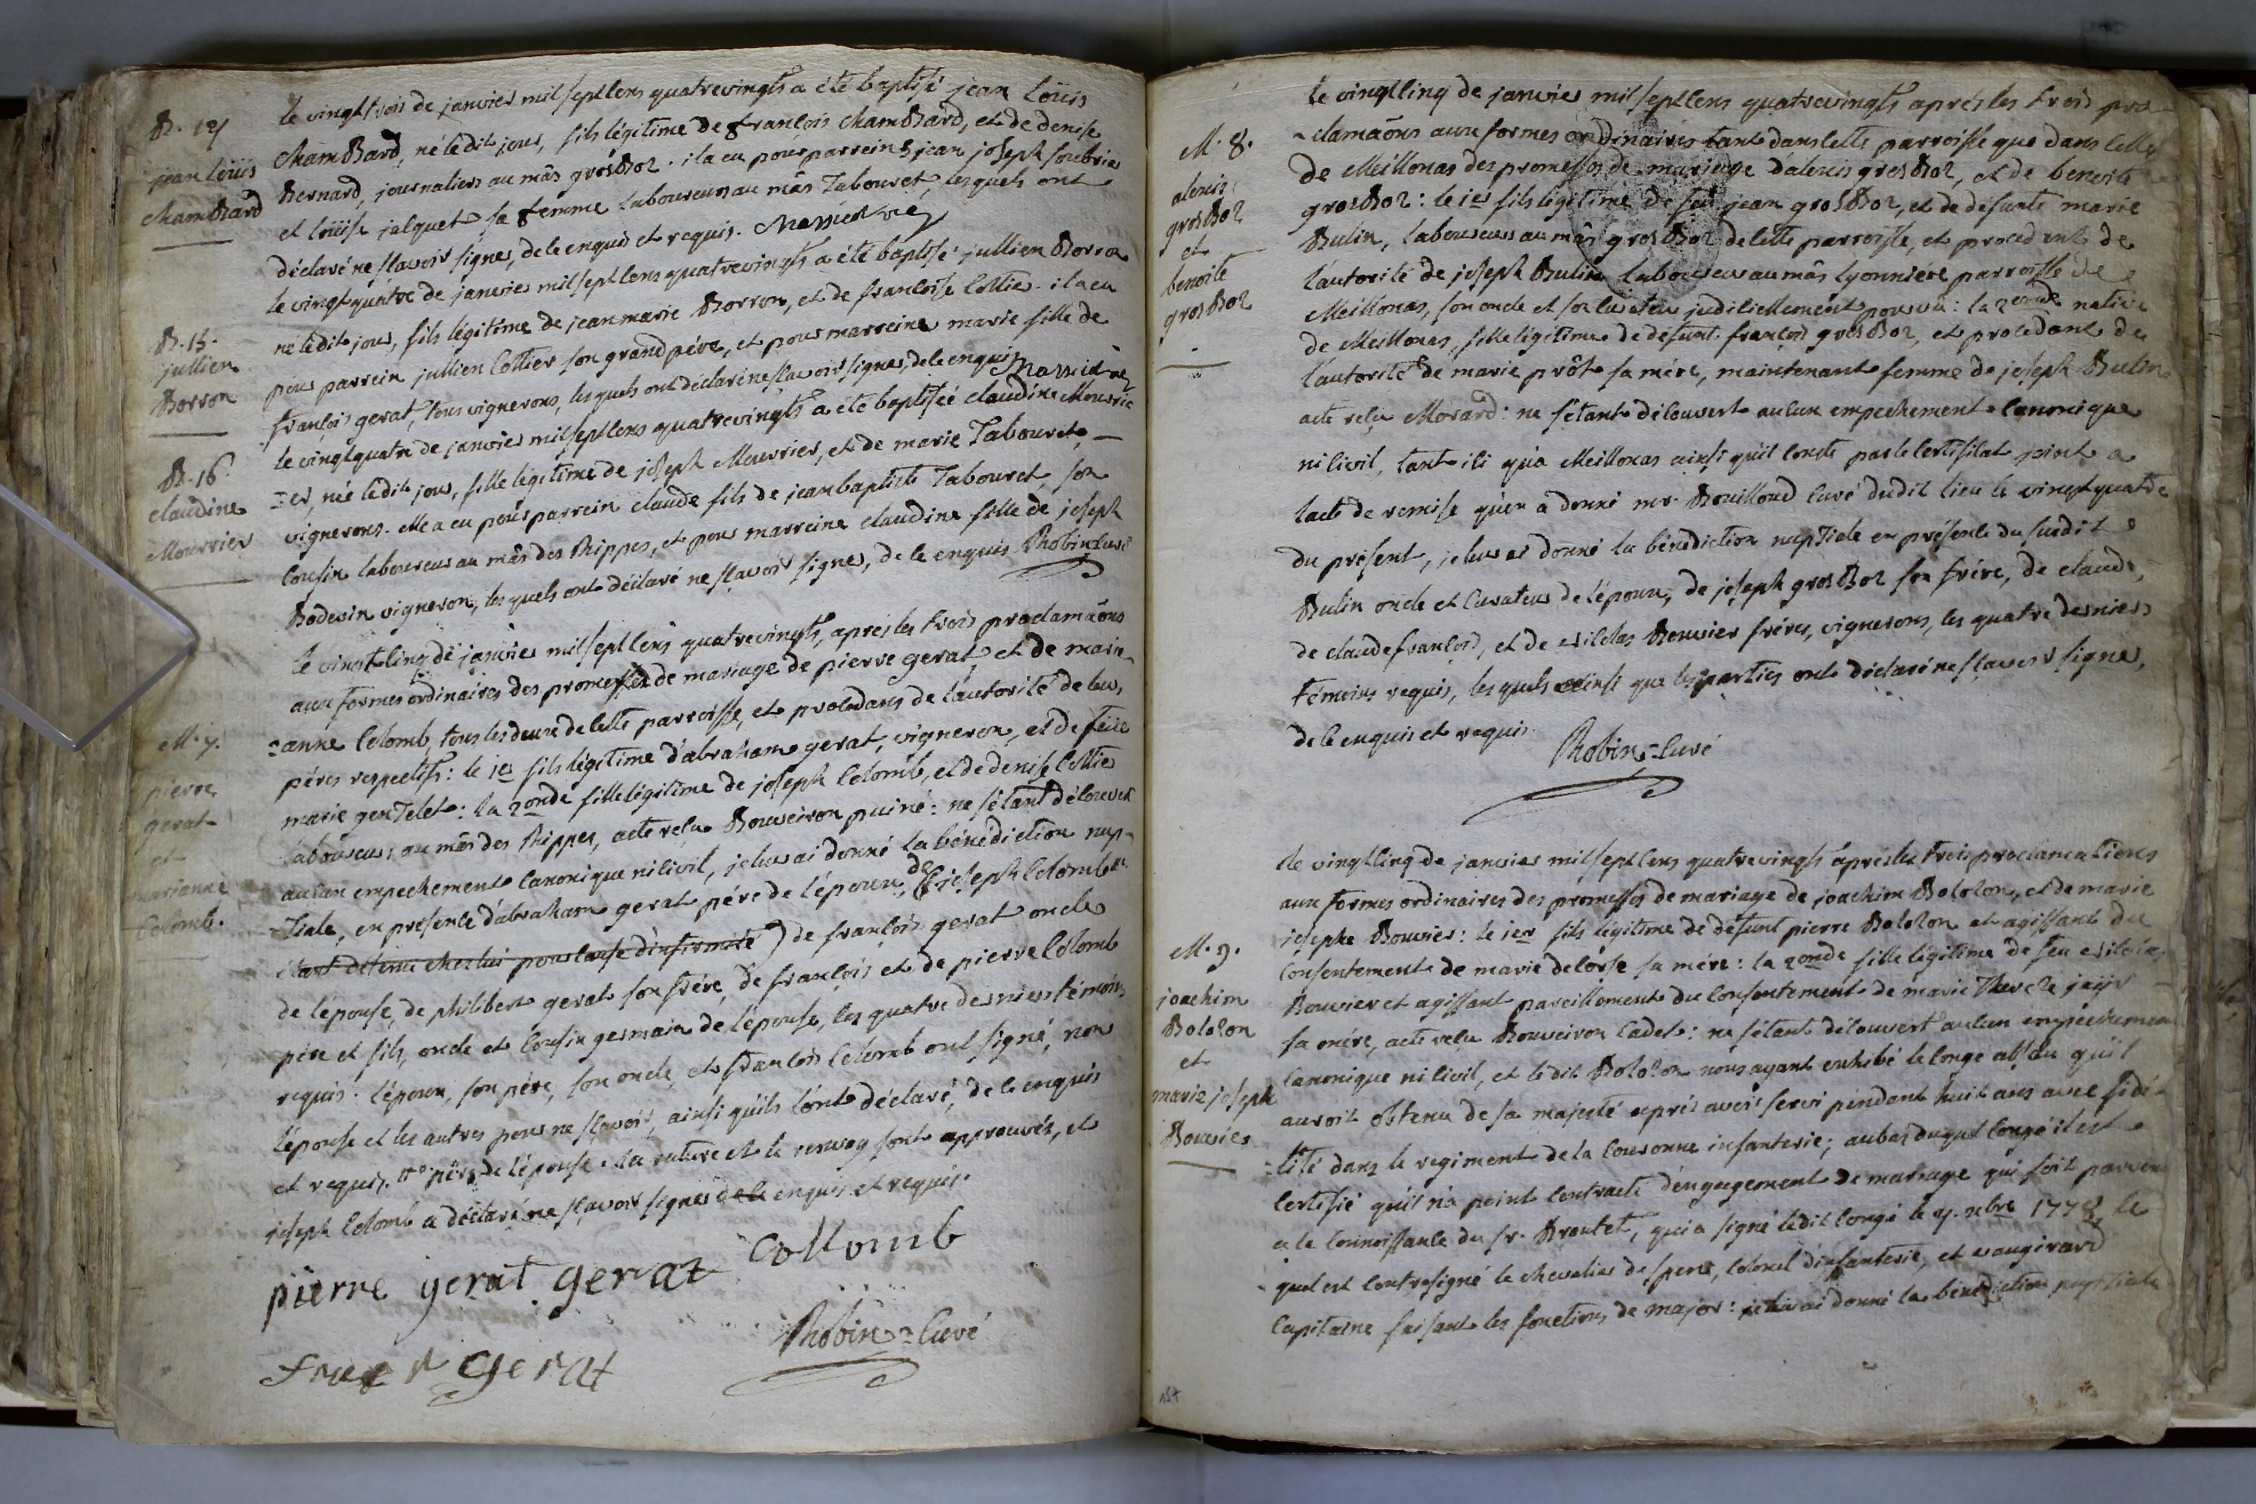 B. 14
jean loüis
chamBard
le vingt trois de janvier mil sept cens quatrevingts a été baptisé jean loüis
chamBard, né ledit jour, fils légitime de francois chamBard, et de denise
Bernard, journaliers au mâs grosBoz. il a eu pour parrein jean joseph
et loüise jalquet sa femme laboureurs au mâs Tabouret, lesquels ont
déclaré ne sçavoir signer, de ce enquis et requis.
B. 15.
jullien
Borron
le vingt quatre de janvier mil sept cens quatrevingts a été baptisé jullien Borron
né ledit jour, fils légitime de jean marie Borron, et de francoise Cottier. il a eu
pour parrein jullien Cottier son grand pére, et pour marreine marie fille de
françois gerat, tous vignerons, lesquels ont déclaré ne sçavoir signer, de ce enquis
B. 16.
claudine
Mourrier
le vingt quatre de janvier mil sept cens quatrevingts a été baptisée claudine Mourri
=er, née ledit jour, fille légitime de joseph Mourrier, et de marie Tabouret,
vignerons. elle a eu pour parrein claude fils de jean baptiste Tabouret, son
cousin laboureur au mâs des Rippes, et pour marreine claudine fille de joseph
Bodevin vigneron, lesquels ont déclaré ne sçavoir signer, de ce enquis Robin curé
M. 7.
pierre
gerat
et
marianne
Colomb.
le vingt cinq de janvier mil sept cens quatrevingts, après les trois proclamaõns
aux formes ordinaires des promesses de mariage de pierre gerat, et de marie
=anne Colomb, tous les deux de cette parroisse, et procedans de l'autorité de leurs
péres respectifs: le 1er fils légitime d'abraham gerat, vigneron, et de feüe
marie genTelet: la 2onde fille légitime de joseph Colomb, et de denise Cottier
laboureurs au mâs des Rippes, acte reçu Bouveiron puiné: ne s'étant découvert
aucun empechement canonique ni civil, je leur ai donné la bénédiction nup-
=Tiale, en présence d'abraham gerat pére de l'époux, de joseph Colomb
étant détenu chez lui pour cause d'infirmité) de françois gerat oncle
de l'épouse, de philibert gerat son frére, de françois et de pierre Colomb
pére et fils, oncle et cousin germain de l'épouse, les quatre derniers témoins
requis. l'époux, son pére, son oncle, et francois Colomb ont signé, non
l'épouse et les autres pour ne sçavoir, ainsi qu'ils l'ont déclaré, de ce enquis
et requis. pére de l'épouse. la rature et le renvoy sont approuvés, et
joseph Colomb a déclaré ne sçavoir signer de ce enquis et requis.
pierre gerat gerat Collomb
gerat
Robin = Curé
M. 8.
alexis
grosBoz
et
benoite
grosBoz
le vingt cinq de janvier mil sept cens quatrevingts après les trois pro
=clamaõns aux formes ordinaires tant dans cette parroisse que dans celle
de Meillonas des promesses de mariage d'alexis grosBoz, et de benoite
grosBoz: le 1er fils légitime de feu jean grosBoz, et de defunte marie
Bulin, laboureur au mâs grosBoz de cette parroisse, et procedant de
l'autorité de joseph Bulin laboureur au mâs lyonniére parroisse de
Meillonas, son oncle et son curateur judiciellement pourvu: la 2onde native
de Meillonas, fille légitime de defunt françois grosBoz, et procedant de
l'autorité de marie prôt sa mére, maintenant femme de joseph Bulin
acte reçu Morard: ne s'étant découvert aucun empechement canonique
ni civil, tant ici qu'a Meillonas ainsi qu'il conste par le certificat joint a
l'acte de remise qu'en a donné mr. Bouilloud curé dudit lieu le vingt quatre
du présent, je leur ai donné la bénédiction nupTiale en présence du susdit
Bulin oncle et curateur de l'époux, de joseph grosBoz son frére, de claude,
de claude françois, et de nicolas Bouvier fréres, vignerons, les quatre derniers
témoins requis, lesquels ainsi que les parties ont déclaré ne sçavoir signer,
de ce enquis et requis.
Robin = curé
M. 9.
joachim
Bolozon
et
marie joseph
Bouvier
le vingt cinq de janvier mil sept cens quatrevingts après les trois proclamations
aux formes ordinaires des promesses de mariage de joachim Bolozon, et de marie
josephe Bouvier: le 1er fils légitime de défunt pierre Bolozon et agissant du
consentement de marie delorse sa mére: la 2onde fille légitime de feu nicolas
Bouvier et agissant pareillement du consentement de marie Therese
sa mére, acte reçu Bouveiron Cadet: ne s'étant découvert aucun empechement
canonique ni civil, et ledit Bolozon nous ayant exhibé le congé absolu qu'il
auroit obtenu de sa majesté après avoir servi pendant huit ans avec fidé-
=lité dans le regiment de la Couronne infanterie; au bas duquel congé il est
certifié qu'il n'a point contracté d'engagement de mariage qui soit parvenu
a la connoissance du sr. Broutet, qui a signé ledit congé le 7. nbre 1778, le
quel est contresigné le chevalier de spens, colonel d'infanterie, et vaugirard
capitaine faisant les fonctions de major: je leur ai donné la bénédiction nuptiale